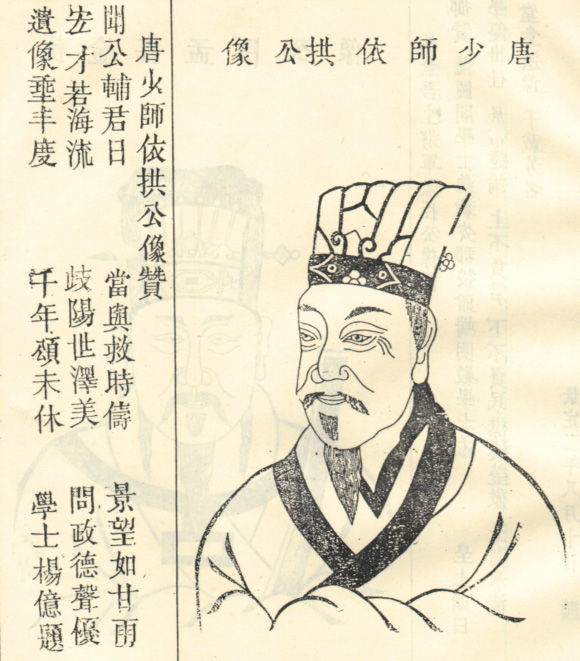 唐少師依拱公像
唐少師依拱公像贊
聞公輔君日 當與救時儔 景望如甘雨
宏才若海流 歧陽世澤美 問政德聲優
遺像垂丰度 千年頌未休 學士楊億題